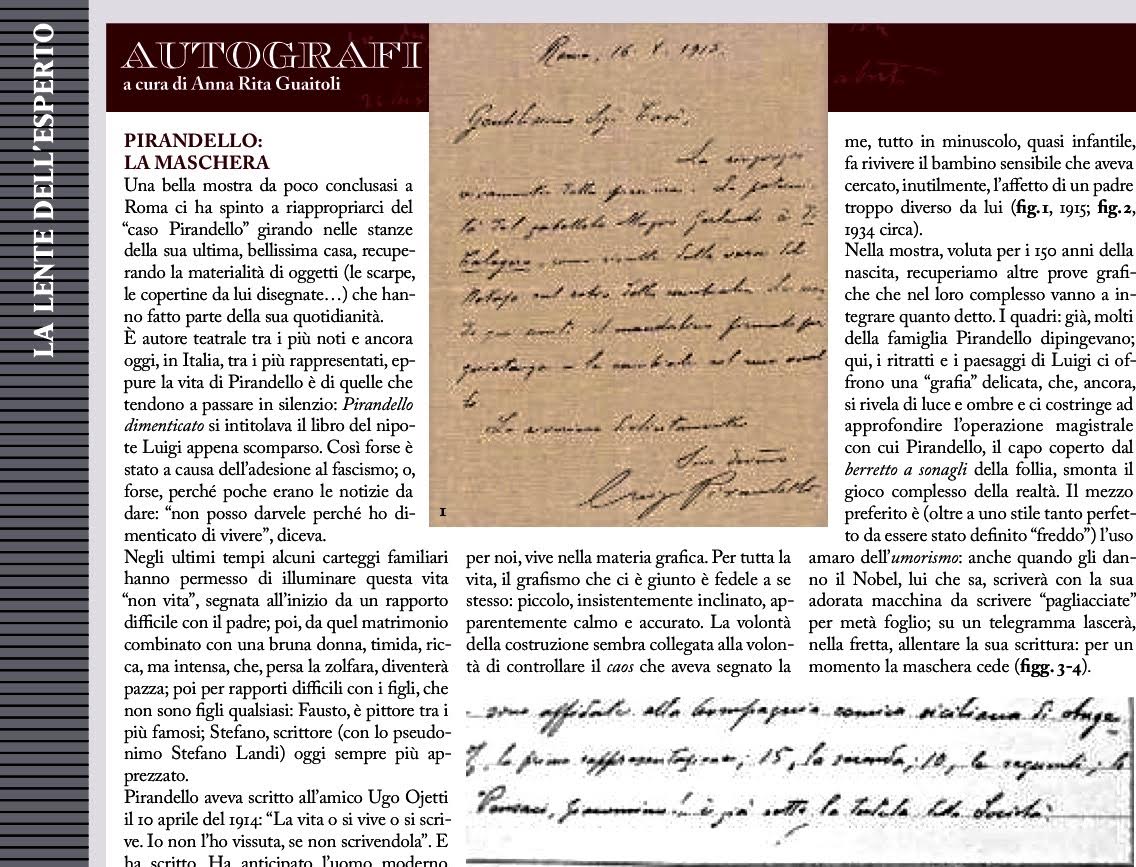 LA LENTE DELL'ESPERTO
AUTOGRAFI
a cura di Anna Rita Guaitoli
PIRANDELLO:
LA MASCHERA
Una bella mostra da poco conclusasi a
Roma ci ha spinto a riappropriarci del
“caso Pirandello” girando nelle stanze
della sua ultima, bellissima casa, recupe-
rando la materialità di oggetti (le scarpe,
le copertine da lui disegnate…) che han-
no fatto parte della sua quotidianità.
È autore teatrale tra i più noti e ancora
oggi, in Italia, tra i più rappresentati, ep-
pure la vita di Pirandello è di quelle che
tendono a passare in silenzio: Pirandello
dimenticato si intitolava il libro del nipo-
te Luigi appena scomparso. Così forse è
stato a causa dell’adesione al fascismo; o,
forse, perché poche erano le notizie da
dare: “non posso darvele perché ho di-
menticato di vivere”, diceva.
Negli ultimi tempi alcuni carteggi familiari
hanno permesso di illuminare questa vita
“non vita”, segnata all’inizio da un rapporto
difficile con il padre; poi, da quel matrimonio
combinato con una bruna donna, timida, ric-
ca, ma intensa, che, persa la zolfara, diventerà
pazza; poi per rapporti difficili con i figli, che
non sono figli qualsiasi: Fausto, è pittore tra i
più famosi; Stefano, scrittore (con lo pseudo-
nimo Stefano Landi) oggi sempre più ap-
prezzato.
Pirandello aveva scritto all’amico Ugo Ojetti
il 10 aprile del 1914: “La vita o si vive o si scri-
ve. Io non l’ho vissuta, se non scrivendola”. E
ha scritto. Ha anticipato l’uomo moderno
Roma, 16. X. 1915.
Luigi Pirandello
1
per noi, vive nella materia grafica. Per tutta la
vita, il grafismo che ci è giunto è fedele a se
stesso: piccolo, insistentemente inclinato, ap-
parentemente calmo e accurato. La volontà
della costruzione sembra collegata alla volon-
tà di controllare il caos che aveva segnato la
me, tutto in minuscolo, quasi infantile,
fa rivivere il bambino sensibile che aveva
cercato, inutilmente, l’affetto di un padre
troppo diverso da lui (fig.1, 1915; fig.2,
1934 circa).
Nella mostra, voluta per i 150 anni della
nascita, recuperiamo altre prove grafi-
che che nel loro complesso vanno a in-
tegrare quanto detto. I quadri: già, molti
della famiglia Pirandello dipingevano;
qui, i ritratti e i paesaggi di Luigi ci of-
frono una “grafia” delicata, che, ancora,
si rivela di luce e ombre e ci costringe ad
approfondire l’operazione magistrale
con cui Pirandello, il capo coperto dal
berretto a sonagli della follia, smonta il
gioco complesso della realtà. Il mezzo
preferito è (oltre a uno stile tanto perfet-
to da essere stato definito “freddo”) l’uso
amaro dell’umorismo: anche quando gli dan-
no il Nobel, lui che sa, scriverà con la sua
adorata macchina da scrivere “pagliacciate”
per metà foglio; su un telegramma lascerà,
nella fretta, allentare la sua scrittura: per un
momento la maschera cede (figg. 3-4).
sono affidate alla Compagnia comica siciliana di Ange
la prima rappresentazione; 15, la seconda; 10, le seguenti;
è già sotto la tutela della Società: